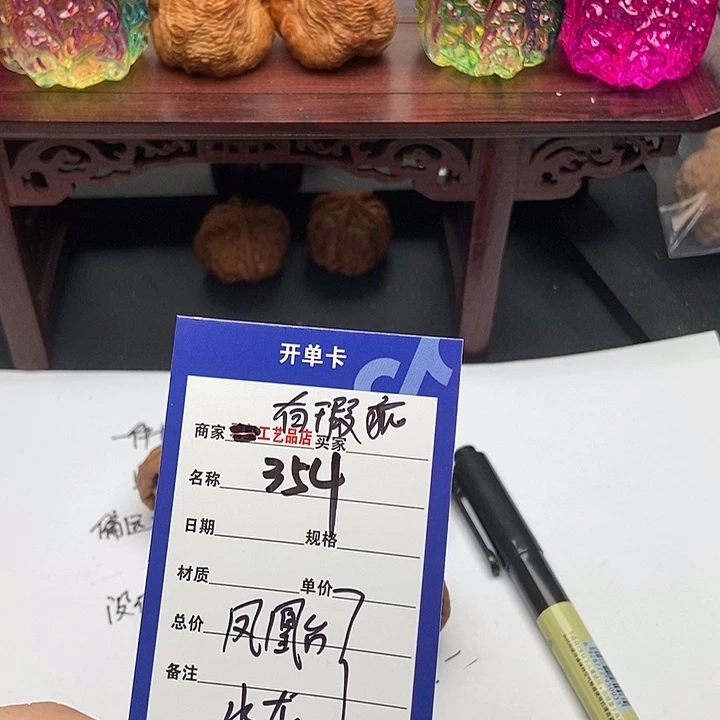 开单卡
有瑕疵
商家 工艺品店 买家
名称 354
日期 规格
材质 单价
总价 凤凰台
备注